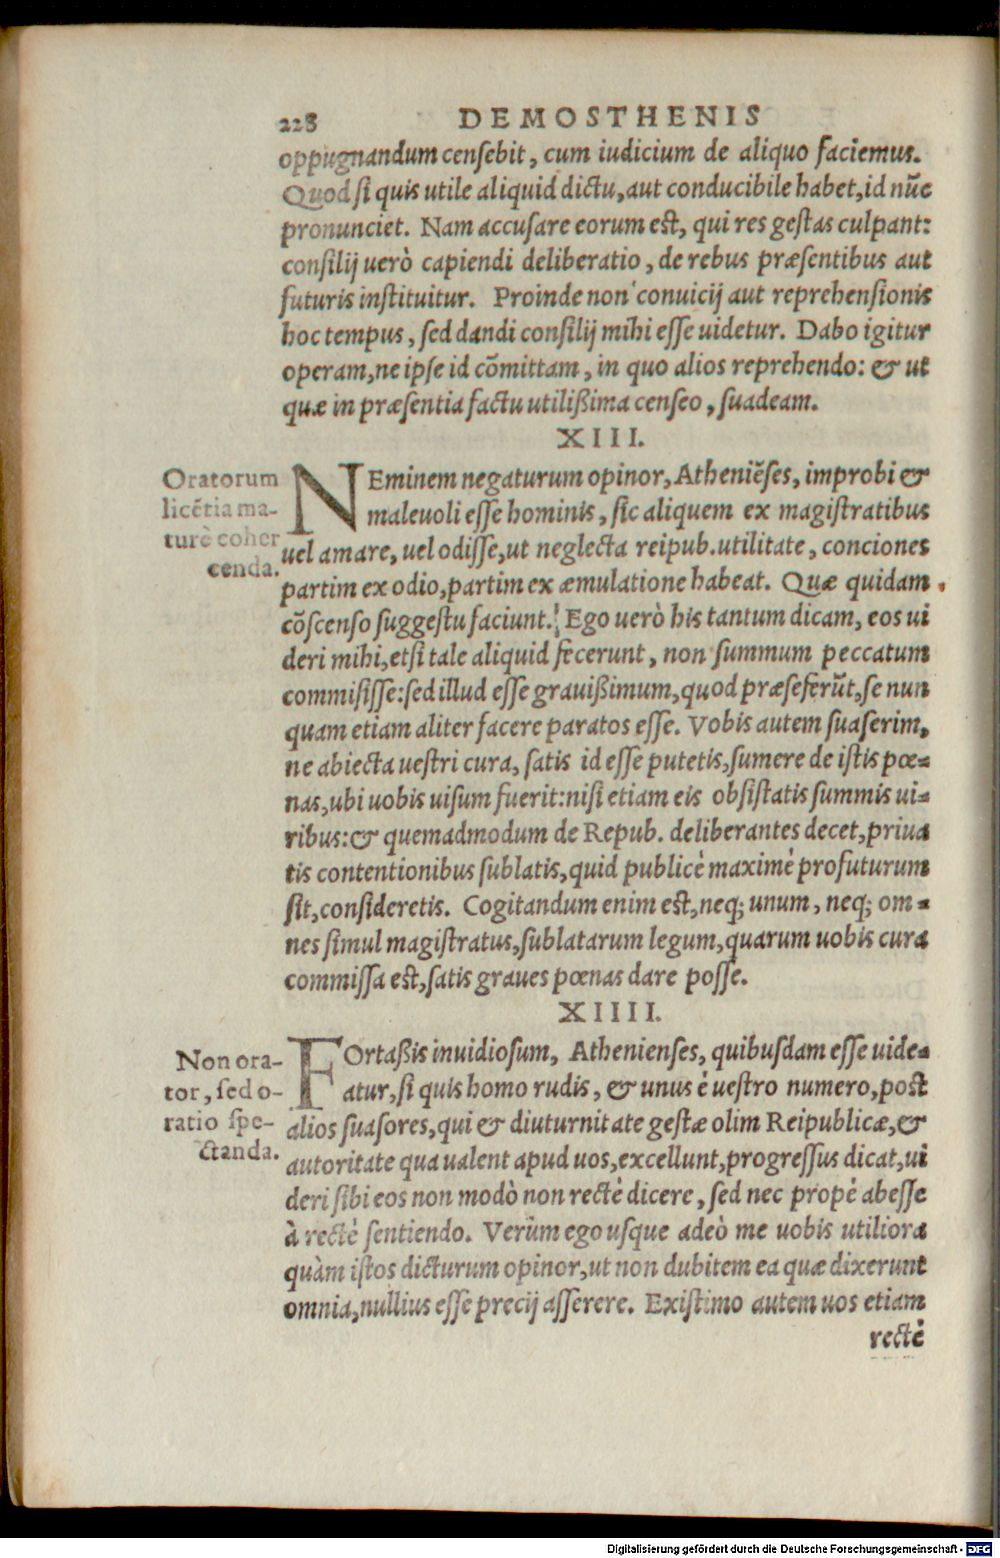 228 DEMOSTHENIS
oppugnandum censebit, cum iudicium de aliquo faciemus.
Quod si quis utile aliquid dictu, aut conducibile habet, id nũc
pronunciet. Nam accusare eorum est, qui res gestas culpant:
consilij uerò capiendi deliberatio, de rebus præsentibus aut
futuris instituitur. Proinde non conuicij aut reprehensionis
hoc tempus, sed dandi consilij mihi esse uidetur. Dabo igitur
operam, ne ipse id cõmittam, in quo alios reprehendo: & ut
quæ in præsentia factu utilißima censeo, suadeam.
XIII.
Oratorum
licẽtia ma-
turè coher
cenda.
NEminem negaturum opinor, Atheniẽses, improbi &
maleuoli esse hominis, sic aliquem ex magistratibus
uel amare, uel odisse, ut neglecta reipub. utilitate, conciones
partim ex odio, partim ex æmulatione habeat. Quæ quidam
cõscenso suggestu faciunt. Ego uerò his tantum dicam, eos ui
deri mihi, etsi tale aliquid fecerunt, non summum peccatum
commisisse: sed illud esse grauißimum, quod præseferũt, se nun
quam etiam aliter facere paratos esse. Vobis autem suaserim,
ne abiecta uestri cura, satis id esse putetis, sumere de istis pœ-
nas, ubi uobis uisum fuerit: nisi etiam eis obsistatis summis ui-
ribus: & quemadmodum de Repub. deliberantes decet, priua
tis contentionibus sublatis, quid publicè maximè profuturum
sit, consideretis. Cogitandum enim est, neq; unum, neq; om-
nes simul magistratus, sublatarum legum, quarum uobis cura
commissa est, satis graues pœnas dare posse.
XIIII.
Non ora-
tor, sed o-
ratio spe-
ctanda.
FOrtaßis inuidiosum, Athenienses, quibusdam esse uide-
atur, si quis homo rudis, & unus è uestro numero, post
alios suasores, qui & diuturnitate gestæ olim Reipublicæ, &
autoritate qua ualent apud uos, excellunt, progressus dicat, ui
deri sibi eos non modò non rectè dicere, sed nec propè abesse
à rectè sentiendo. Verùm ego usque adeò me uobis utiliora
quàm istos dicturum opinor, ut non dubitem ea quæ dixerunt
omnia, nullius esse precij asserere. Existimo autem uos etiam
rectè
Digitalisierung gefördert durch die Deutsche Forschungsgemeinschaft - DFG